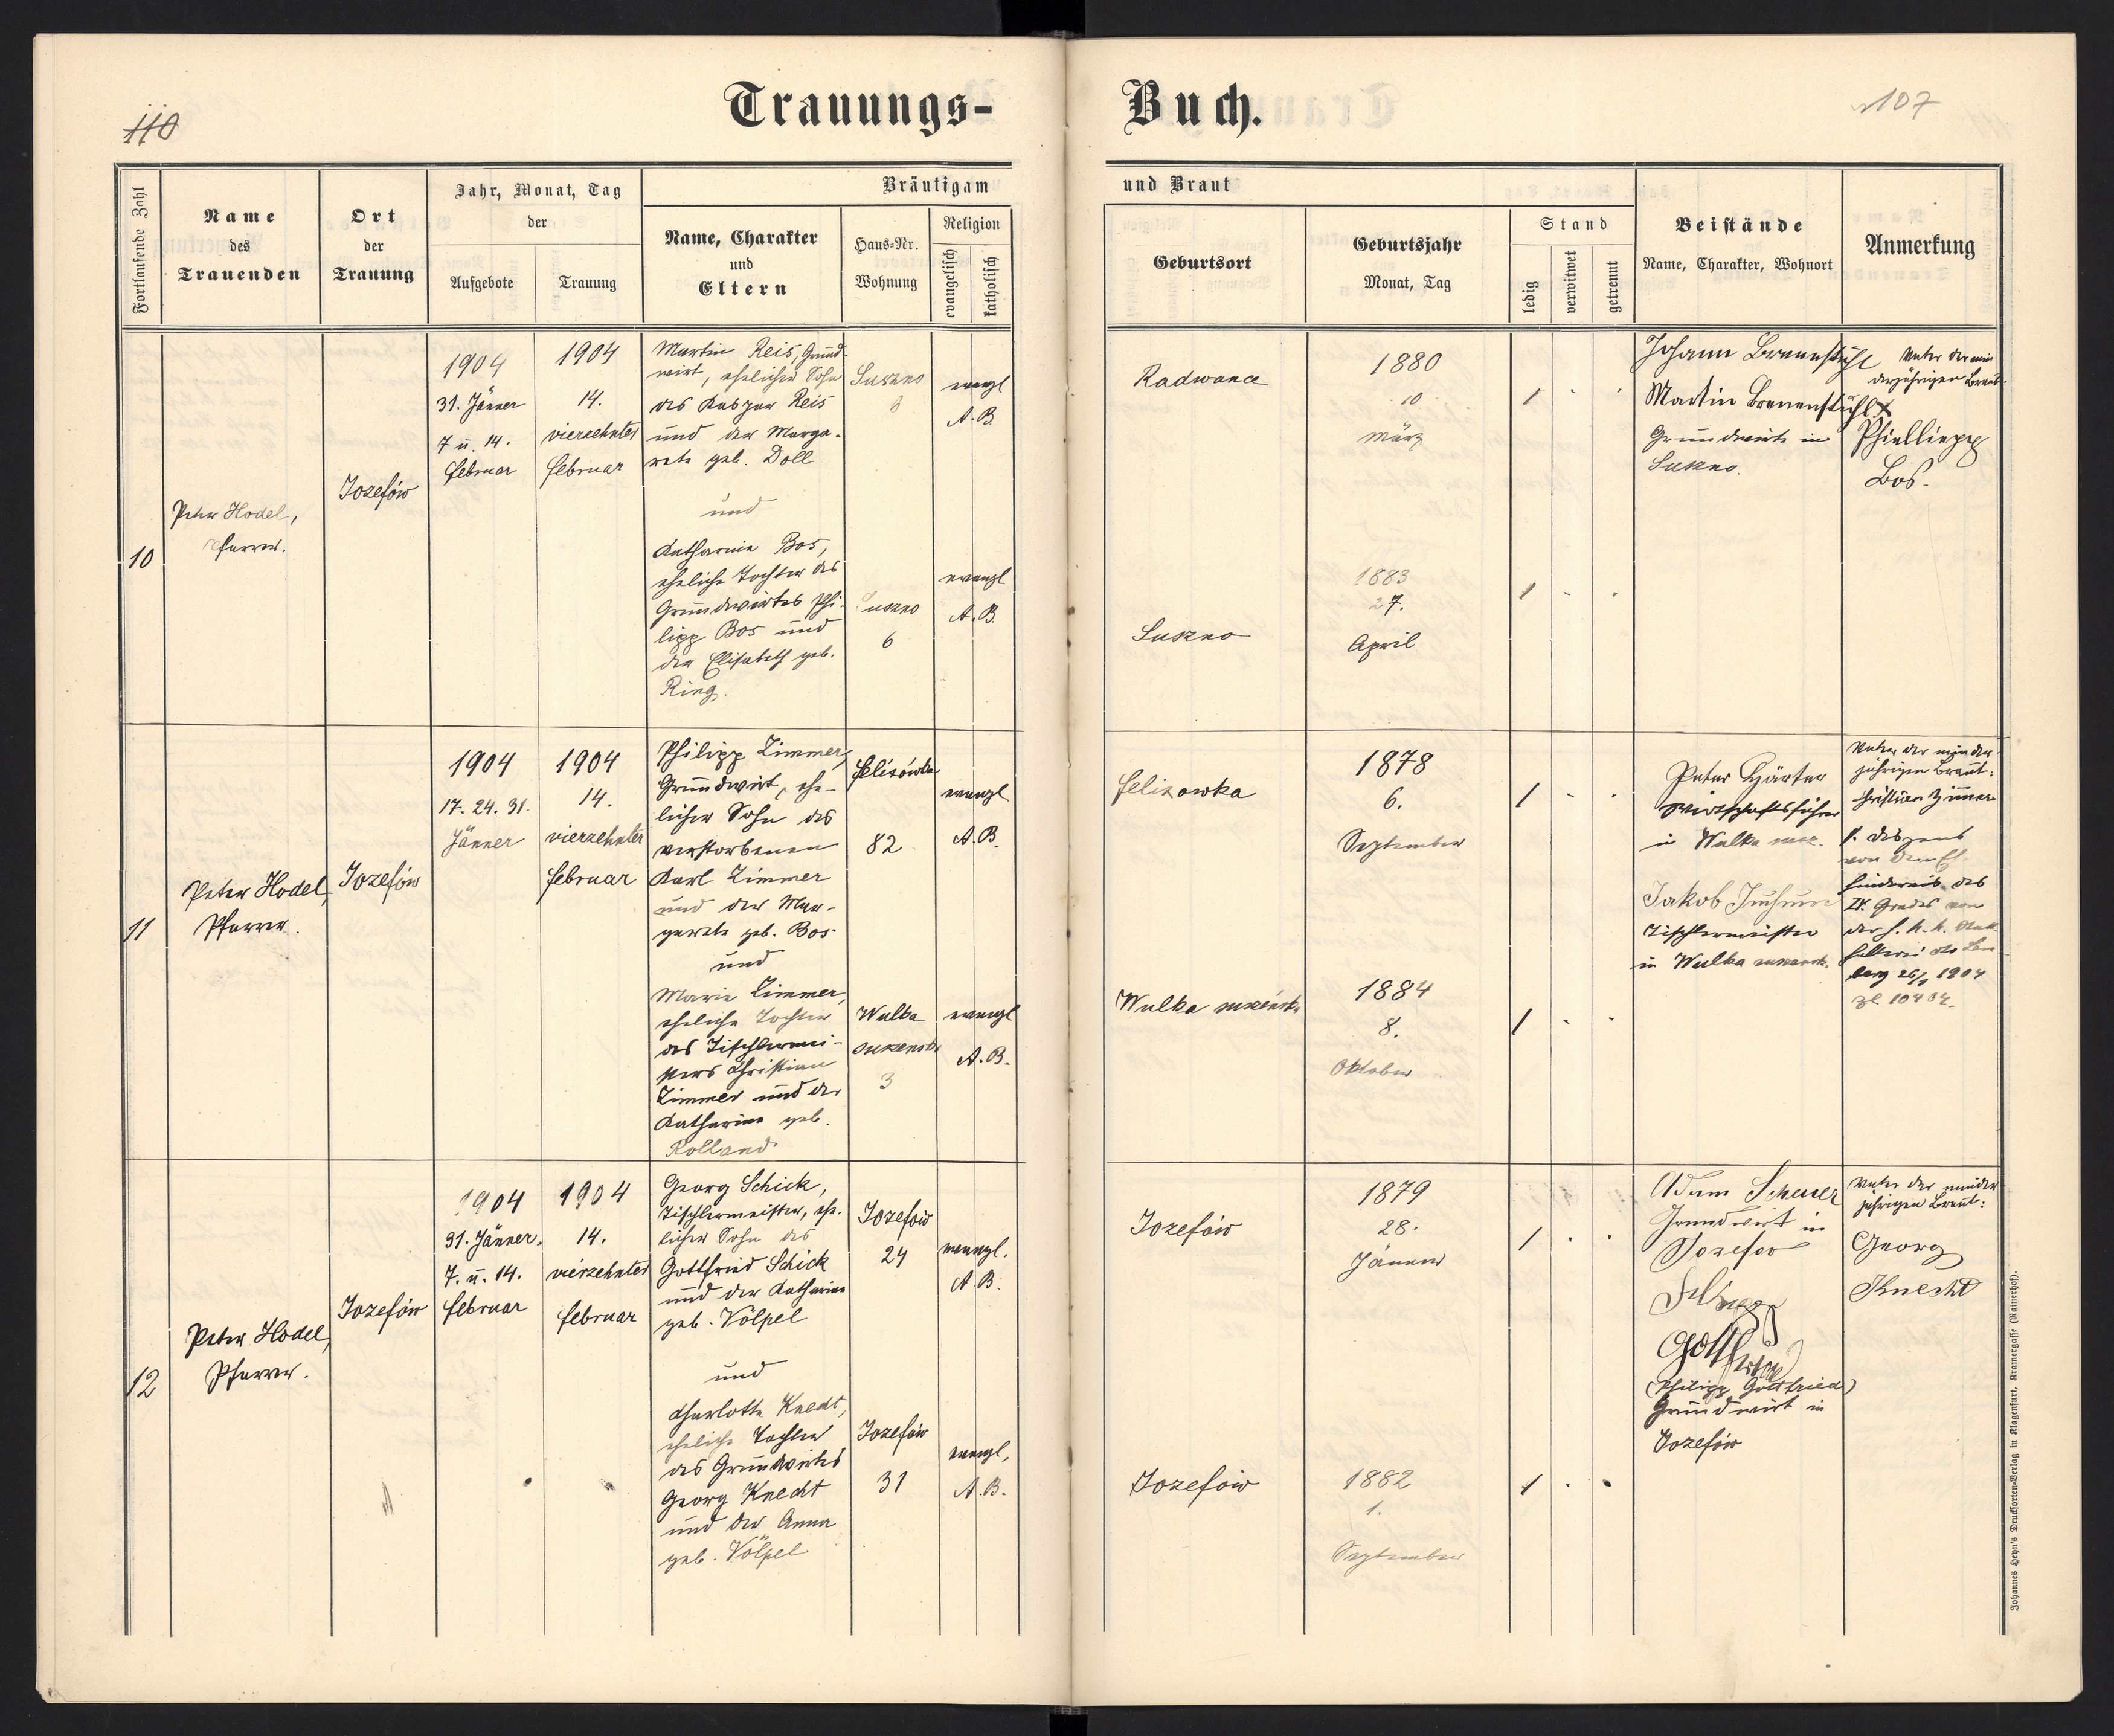 110
Trauungs-
Buch.
107
Fortlaufende Zahl
Name
des
Trauenden
Ort
der
Trauung
Jahr, Monat, Tag
der
Aufgebote
Trauung
Bräutigam
Name, Charakter
und
Eltern
Haus-Nr.
Wohnung
Religion
evangelisch
katholisch
und Braut
Geburtsort
Geburtsjahr
Monat, Tag
Stand
ledig
verwitwet
getrennt
Beistände
Name, Charakter, Wohnort
Anmerkung
10
Peter Hodel,
Pfarrer.
Jozefów
1904
31. Jänner
7 u. 14.
februar
1904
14.
vierzehnter
februar
Martin Reis, Grund-
wirt, ehelicher Sohn
des Kaspar Reis
und der Marga-
rete geb. Doll
und
Katharina Bos,
eheliche Tochter des
Grundwirtes Phi-
lipp Bos und
der Elisabeth geb.
Ring.
Suszno
Suszno
6
evangl
A.B.
evangl
A.B.
Radwance
Suszno
1880
10
März
1883
27.
April
Johann Brenenstuhl
Martin Brenenstuhl
Grundwirte in
Suszno.
Vater der min
derjährigen Braut
Phielliepp
Bos.
11
Peter Hodel,
Pfarrer.
Jozefów
1904
17. 24. 31.
Jänner
1904
14.
vierzehnter
februar
Philipp Zimmer,
Grundwirt, ehe-
licher Sohn des
verstorbenen
Karl Zimmer
und der Mar-
garete geb. Bos
und
Marie Zimmer,
eheliche Tochter
des Tischlermei-
sters Christian
Zimmer und der
Katharina geb.
Rolland
felizówka
82
Wulka
suszensk.
3
evangl
A.B.
evangl
A.B.
felizowka
Wulka suszeńsk.
1878
6.
September
1884
8.
Oktober
Peter Härter
Wirtschaftsführer
in Wulka susz.
Jakob
Tischlermeister
in Wulka suszensk.
Vater der minder
jährigen Braut:
Christian Zimmer
von dem Eh
hindernis des
IV. Grades von
der h. k. k. Statt
halterei dto Lem
berg 26/1 1904
12
Peter Hodel,
Pfarrer.
Jozefów
1904
31. Jänner.
7. u. 14.
februar
1904
14.
vierzehnter
februar
Georg Schick,
Tischlermeister, ehe-
licher Sohn des
Gottfried Schick
und der Katharina
geb. Völpel
und
Charlotte Knecht,
eheliche Tochter
des Grundwirtes
Georg Knecht
und der Anna
geb. Völpel
Jozefów
24
Jozefów
31
evangl.
A.B.
evangl.
A.B.
Jozefów
Jozefów
1879
28.
Jänner
1882
1.
September
Adam Scheuer
Grundwirt in
Jozefow
(Philipp Gottfried)
Grundwirt in
Jozefów
Vater der minder
jährigen Braut:
Georg
Knecht
Johannes Heyn's Drucksorten-Verlag in Klagenfurt, Kramergasse (Rainerhof).